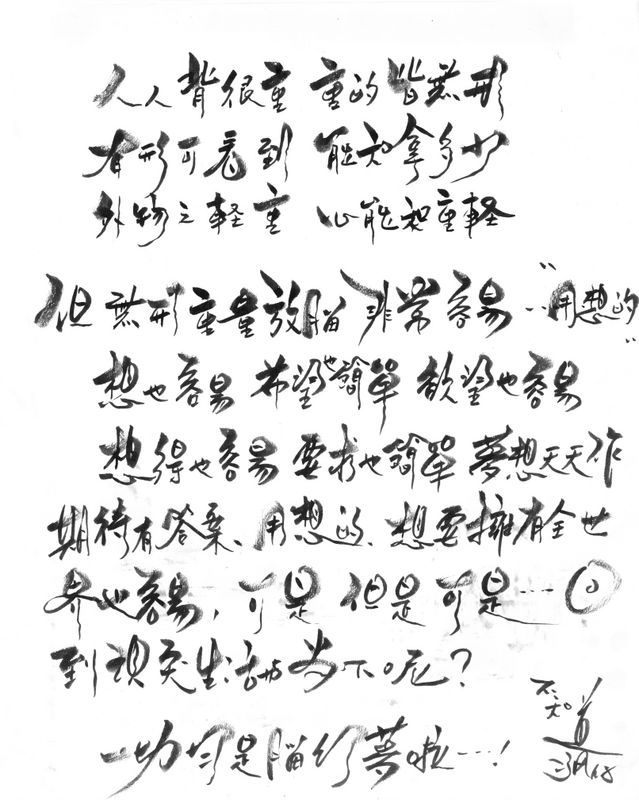 人人背很重 重的皆無形
有形可看到 能知拿多少
外物之輕重 心能知重輕
但無形重量放腦 非常容易…"用想的"
想也容易 希望也簡單 欲望也容易
想得也容易 要求也簡單 夢想天天作
期待有答案、用想的、想要擁有全世
界也容易,可是 但是 可是……回
到現實生活當下呢?
一切可是腦行善啦……!
不知道